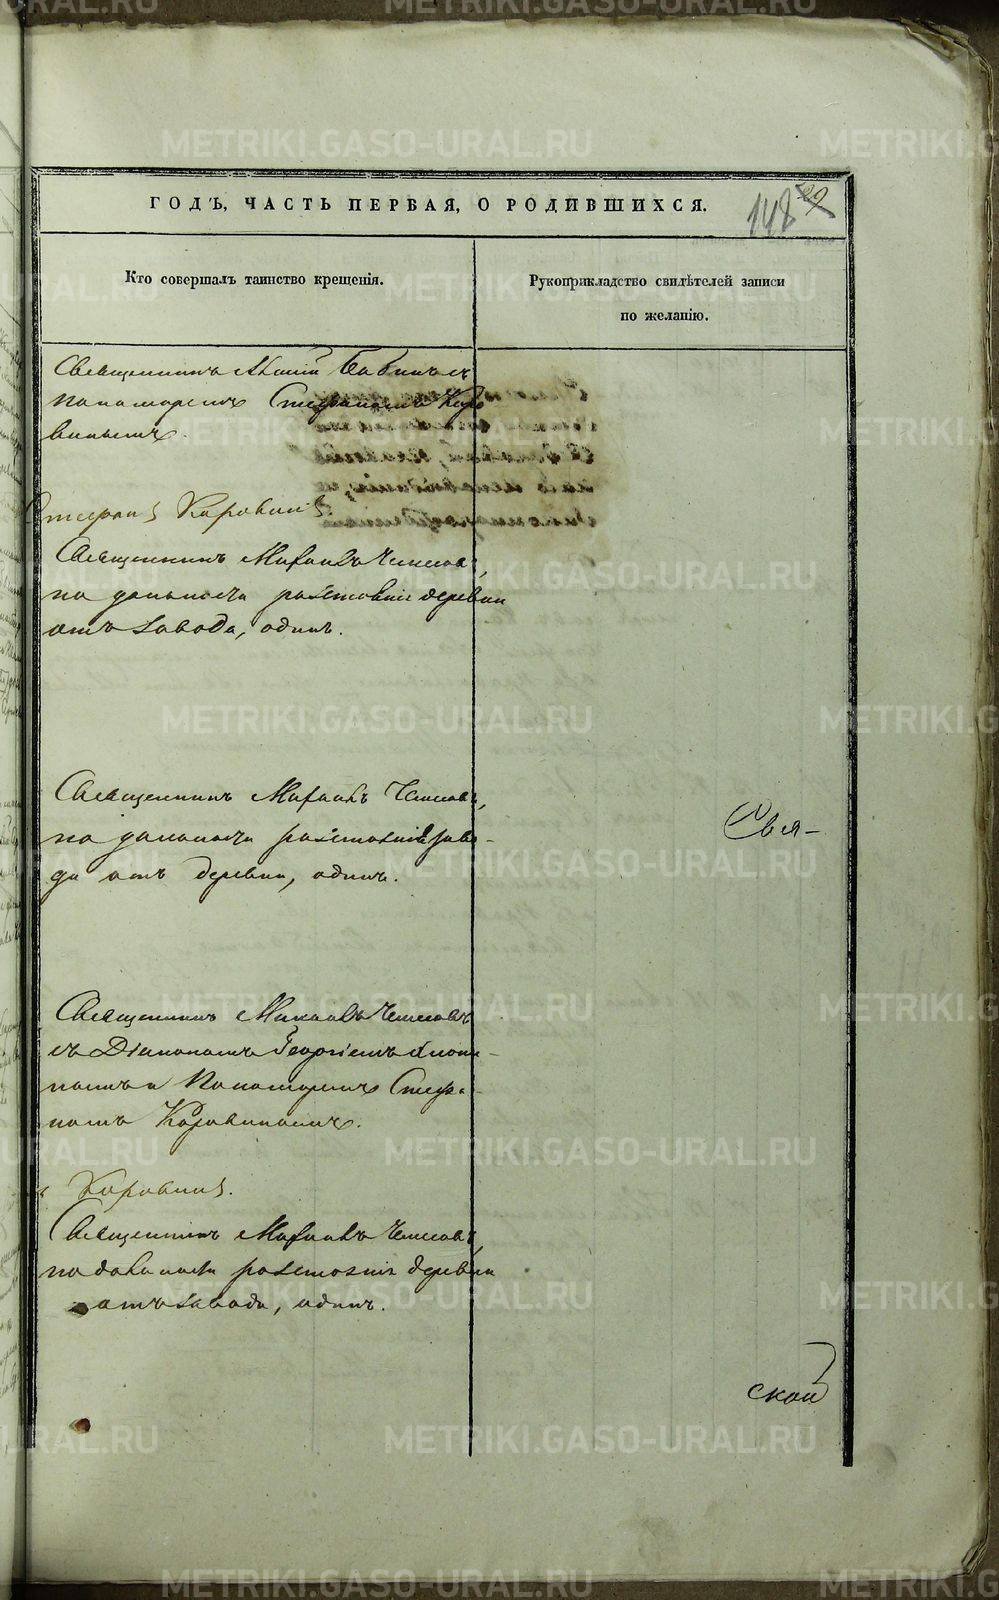 ГОДЪ, ЧАСТЬ ПЕРВАЯ, О РОДИВШИХСЯ.
148
Кто совершалъ таинство крещенія.
Рукоприкладство свидѣтелей записи
по желанію.
Священникъ Бабинъ съ
пономаремъ Стефаномъ Коро
винымъ.
Коровинъ.
Священникъ Михаилъ
по дальности разстоянія деревни
отъ завода, одинъ.
Священникъ Михаилъ
по дальности разстоянія заво-
да отъ деревни, одинъ.
Свя-
Священникъ Михаилъ
съ Діакономъ Георгіемъ
и Пономаремъ Стефа-
номъ Коровинымъ.
Коровинъ.
Священникъ Михаилъ
по дальности разстоянія деревни
отъ завода, одинъ.
ской
METRIKI.GASO-URAL.RU